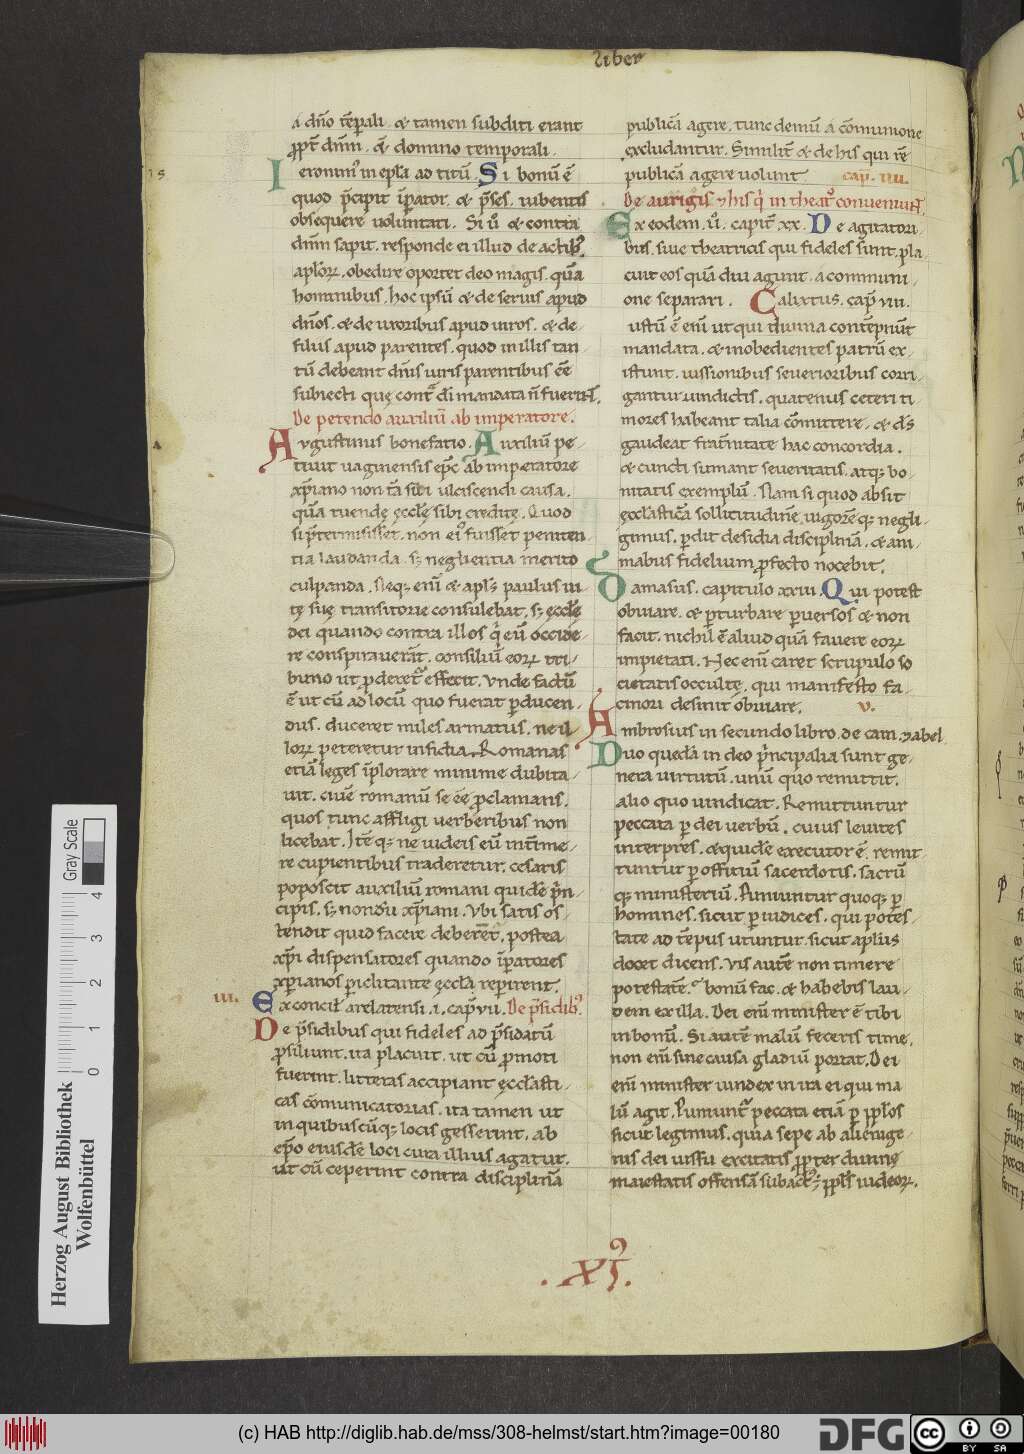 Liber
a dño tēporali. & tamen subditi erant
ꝓpt̄ dñm. q̄ domino temporali.
Ieronim᾿ in epl̄a ad titū. Si bonū ē
quod p̄cipit īpator. & p̄ses. iubentis
obsequere uoluntati. Si u᷎o & contra
dñm sapit. responde ei illud de actib᾿
aplōꝝ. obedire oportet deo magis. quā
hominibus. hoc ipsū & de seruis apud
dños. & de uxoribus apud uiros. & de
filiis apud parentes. quod in illis tan
tū debeant dñis uiris parentibus ēē
subiecti quę contᷓ di mandata ñ fuerint.
De petendo auxiliū ab imperatore.
Augustinus bonefatio. Auxiliū pe
tiuit uaginensis ep̄c ab imperatore
xp̄iano non tā sibi ulciscendi causa.
quā tuendę ęcclę sibi creditę. Quod
si p̄termisisset. non ei᾿ fuisset peniten
tia laudanda. sꝫ neglientia merito
culpanda. Neq; enī & apl̄s paulus ui
tę suę transitorie consulebat. sꝫ ęcclę
dei quando contra illos q᷎ eū occide
re conspirauerāt. consiliū eoꝝ tri
buno ut ꝓderet᷑ effecit. Vnde factū
ē ut cū ad locū quo fuerat ꝑducen
dus. duceret miles armatus. ne il
loꝝ peteretur insidia. Romanas
etiā leges īplorare minime dubita
uit. ciuē romanū se ēē ꝓclamans.
quos tunc affligi uerberibus non
licebat. Itē q; ne iudeis eū int̄ime
re cupientibus traderetur. cesaris
poposcit auxiliū romani quidē p̄n
cipis. sꝫ nondū xp̄iani. Vbi satis os
tendit quid facere deberēt. postea
xp̄i dispensatores quando īpatores
xp̄ianos ꝑiclitante ęccla repirent.
III. Ex concil̄ arelatensi. I. cap̄ VII. De p̄sidib᾿.
De p̄sidibus qui fideles ad p̄sidatū
ꝓsiliunt. ita placuit. ut cū ꝓmoti
fuerint. litteras accipiant ęcclasti
cas cōmunicatorias. ita tamen ut
in quibuscūq; locis gesserint. ab
epō eiusdē loci cura illius agatur.
ut cū ceperint contra disciplinā
publicā agere. tunc demū a cōmunione
excludantur. Similit̄ & de his qui rē
publicā agere uolunt cap. IIII.
De aurigis ⁊ his q᷎ in theat᷒ conueniunt.
Ex eodem. u᷎. capit̄ xx. De agitatori
bus. siue theatricis qui fideles sunt. pla
cuit eos quā diu agunt. a communi
one separari. Calixtus. cap̄ IIII.
ustū ē enī ut qui diuina contēpnūt
mandata. & inobedientes patrū ex
istunt. iussionibus seuerioribus corri
gantur uindictis. quatenus ceteri ti
mores habeant talia cōmittere. & ds̄
gaudeat frat̄nitate hac concordia.
& cuncti sumant seueritatis. atq; bo
nitatis exemplū. Nam si quod absit
ęcclastica sollicitudinē. uigorēq; negli
gimus. ꝑdit desidia disciplinā. & ani
mabus fidelium ꝓfecto nocebit.
Damasus. capitulo xxiii. Qui potest
obuiare. & ꝑturbare ꝑuersos & non
facit. nichil ē aliud quā fauere eoꝝ
impietati. Nec enī caret scrupulo so
cietatis occultę. qui manifesto fa
cinori desinit obuiare. V.
Ambrosius in secundo libro. de cain ⁊ abel
Duo quedā in deo p̄ncipalia sunt ge
nera uirtutū. unū quo remittit.
alio quo uindicat. Remittuntur
peccata ꝑ dei uerbū. cuius leuites
interpres. & quidē executor ē. remit
tuntur ꝑ offitiū sacerdotis. sacrū
q; ministeriū. Puniuntur quoq; ꝑ
homines. sicut ꝑ iudices. qui potes
tate ad tēpus utuntur. sicut aplūs
docet dicens. Vis autē non timere
potestatē. bonū fac. & habebis lau
dem ex illa. Dei enī minister ē tibi
in bonū. Si autē malū feceris time.
non enī sine causa gladiū portat. Dei
enī minister iundex in ira ei qui ma
lū agit. Puniunt᷑ peccata etiā ꝑ pplōs
sicut legimus. quia sepe ab alienige
nis dei iussu excitatis ꝓpter diuinę
maiestatis offensā subact᾿ ē ppl̄s iudeoꝝ.
.XI᾿.
Herzog August Bibliothek
Wolfenbüttel
0 1 2 3 4
Gray Scale
(c) HAB http://diglib.hab.de/mss/308-helmst/start.htm?image=00180
DFG
cc BY SA